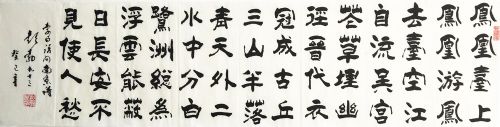 鳳凰臺上
鳳凰游鳳
去臺空江
自流吳宮
花草埋幽
徑晉代衣
冠成古丘
三山半落
青天外二
水中分白
鷺洲總為
浮雲能蔽
日長安不
見使人愁
李白詩
九十三
癸巳年